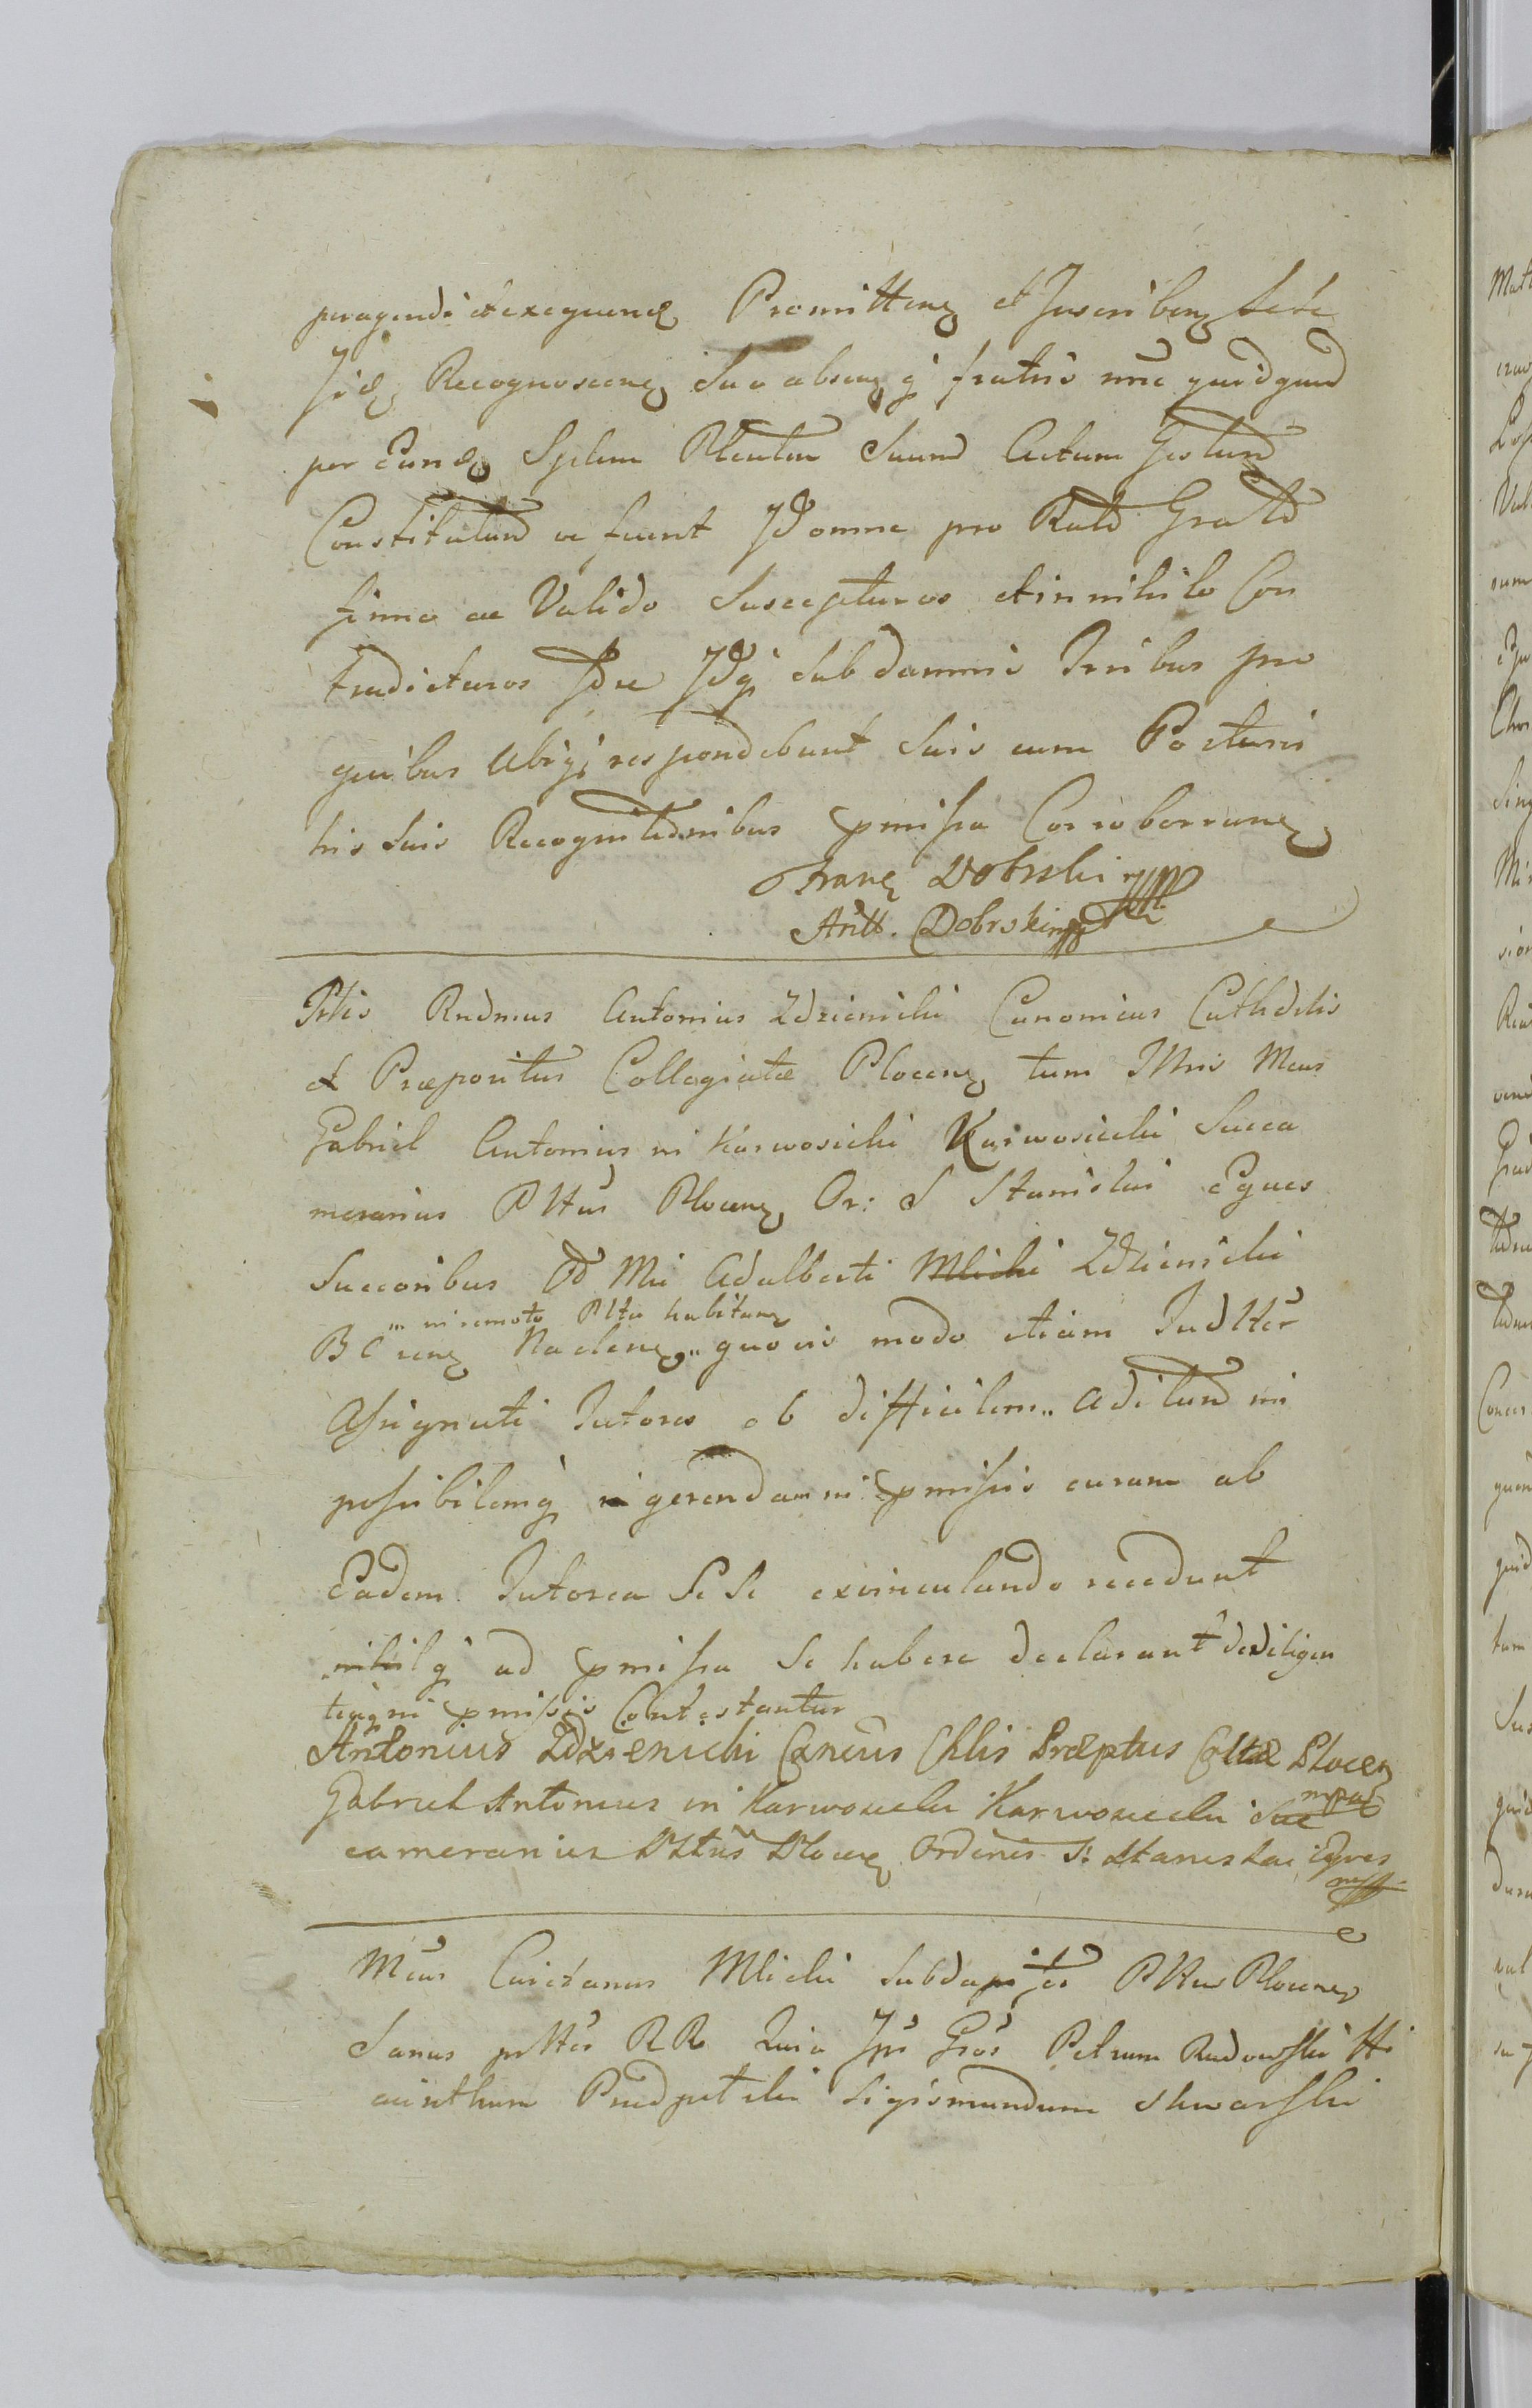 peragendi et exequend Promitten et Inscriben sese
Iid Recognoscen suo absen q fratris nne quidquid
per Eund Splem Plentem Suum Actum Gestum
Constitutum ve fuerit Id omne pro Rato Grato
firmo ac Valido Suscepturos et in nihilo Con
tradicturos Idq sub damnis Tribus pro
quibus Ubiq respondebunt Suis cum Posturis
his suis Recognitionibus pmissa Corroborran
Franc Dobrski mpp
Antt. Dobrski mpp
Pltis Rndmus Antonius Zdzienicki Canonicus Cathdrlis
et Præpositus Collegiatæ Plocen tum IMnis Mcus
Gabriel Antonius in Karwosieki Karwosiecki Succa
merarius Plttus Plocen Or: S Stanislai Eques
Succoribus Od Mci Adalberti Mlicki Zdzienicki
" in remoto Plttu habitan
B C ren Naclen " quovis modo etiam Judttér
Assignati Tutores ob difficilem " aditum im
possibilemq gerendam in pmissis curam ab
Eadem Tutorea Se Se exvinculando recedunt
nihilq ad pmissa Se habere declarant de diligen
tiaq in pmissis Contestantur
Antonius Zdzienicki Cancus Chlis Præptus Colltæ Plocen
mpp
Gabriel Antonius in Karwosiecki Karwosiecki Suc
camerarius Plttus Plocen Ordinis S: Stanislai Eques
mpp
Mcus Caietanus Mlicki Subdapi Plttus Plocen
Sanus prttés RR Quia Ips Grós Petrum Rudowski Hi
acinthum Prudpotski Sigismundum Skwarski